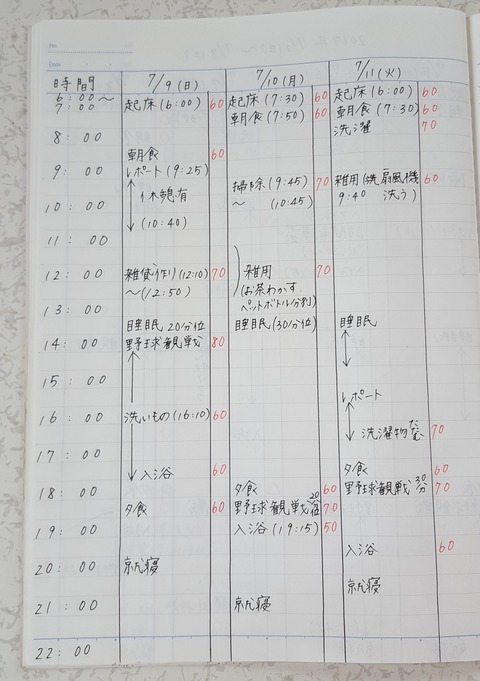 No.
Date
時間 7/9(日) 7/10(月) 7/11(火)
6:00〜 起床(6:00) 60 起床(7:30) 60 起床(6:00) 60
7:00 朝食(7:50) 60 朝食(7:30) 60
洗濯 70
8:00
朝食 60
9:00 レポート(9:25)
休憩有 掃除(9:45) 70 雑用(洗 扇風機 60
10:00 (10:40) 〜(10:45) 9:40 洗う)
11:00
12:00 雑食作り(12:10) 70 雑用 70
〜(12:50) (お茶わかす
13:00 ペットボトル分別)
睡眠 20分位 睡眠(30分位) 睡眠
14:00 野球観戦 80
15:00
レポート
16:00 洗いもの(16:10) 60
洗濯物たたむ 70
17:00
入浴 60 夕食 60
18:00 夕食 60 野球観戦 30分 70
夕食 60 野球観戦 20分位 70
19:00 入浴(19:15) 50
入浴 60
20:00 就寝
就寝
21:00 就寝
22:00